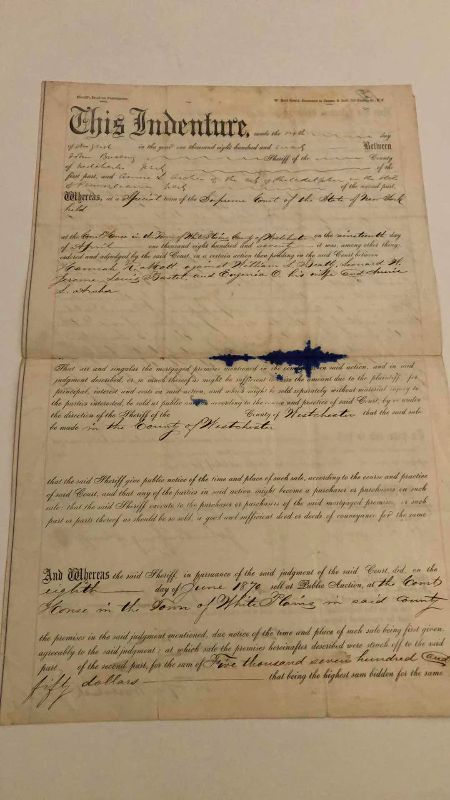 Sheriff's Deed on Foreclosure.
This Indenture, made the day
of August in the year one thousand eight hundred and Between
John Sheriff of the County
of Westchester of the
first part, and of the city of Philadelphia in the State
of Pennsylvania of the second part,
Whereas, at a Special term of the Supreme Court of the State of New York
held
at the Court House in the Town of White Plains County of Westchester on the nineteenth day
of April one thousand eight hundred and seventy it was, among other things,
ordered and adjudged by the said Court, in a certain action then pending in the said Court, between
Hannah against William S. Leonard W.
Jerome, Louis and Eugenia C. his wife and
That all and singular the mortgaged premises mentioned in the in said action, and in said
judgment described, or so much thereof as might be sufficient to the amount due to the plaintiff for
principal, interest and costs in said action, and which might be sold separately without material injury to
the parties interested, be sold at public according to the and practice of said Court, by or under
the direction of the Sheriff of the County of Westchester that the said sale
be made in the County of Westchester
that the said Sheriff give public notice of the time and place of such sale, according to the course and practice
of said Court, and that any of the parties in said action might become a purchaser or purchasers on such
sale; that the said Sheriff execute to the purchaser or purchasers of the said mortgaged premises, or such
part or parts thereof as should be so sold, a good and sufficient deed or deeds of conveyance for the same
And Whereas the said Sheriff, in pursuance of the said judgment of the said Court, did, on the
eighth day of June 1870 sell at Public Auction, at the Court
House in the Town of White Plains in said County
the premises in the said judgment mentioned, due notice of the time and place of such sale being first given,
agreeably to the said judgment; at which sale the premises hereinafter described were struck off to the said
part of the second part, for the sum of Five thousand seven hundred and
fifty dollars that being the highest sum bidden for the same